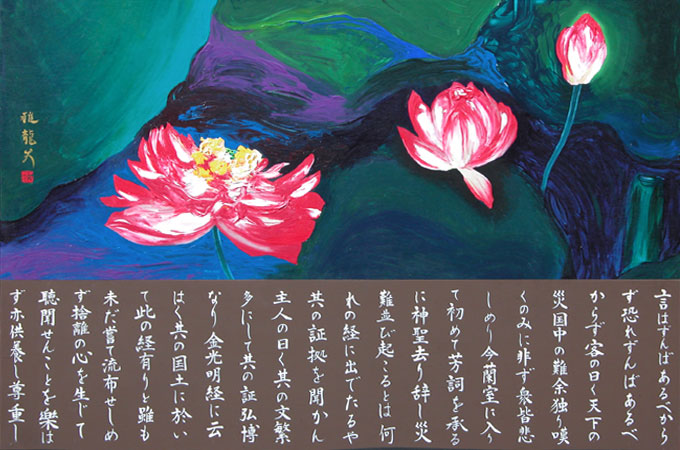 言はずんばあるべから
ず恐れずんばあるべ
からず客の曰く天下の
災国中の難余独り嘆
くのみに非ず衆皆悲
しめり今蘭室に入り
て初めて芳詞を承る
に神聖去り辞し災
難並び起こるとは何
れの経に出でたるや
其の証拠を聞かん
主人の曰く其の文繁
多にして其の証弘博
なり金光明経に云
はく其の国土に於い
て此の経有りと雖も
未だ嘗て流布せしめ
ず捨離の心を生じて
聴聞せんことを楽は
ず亦供養し尊重し
雅龍